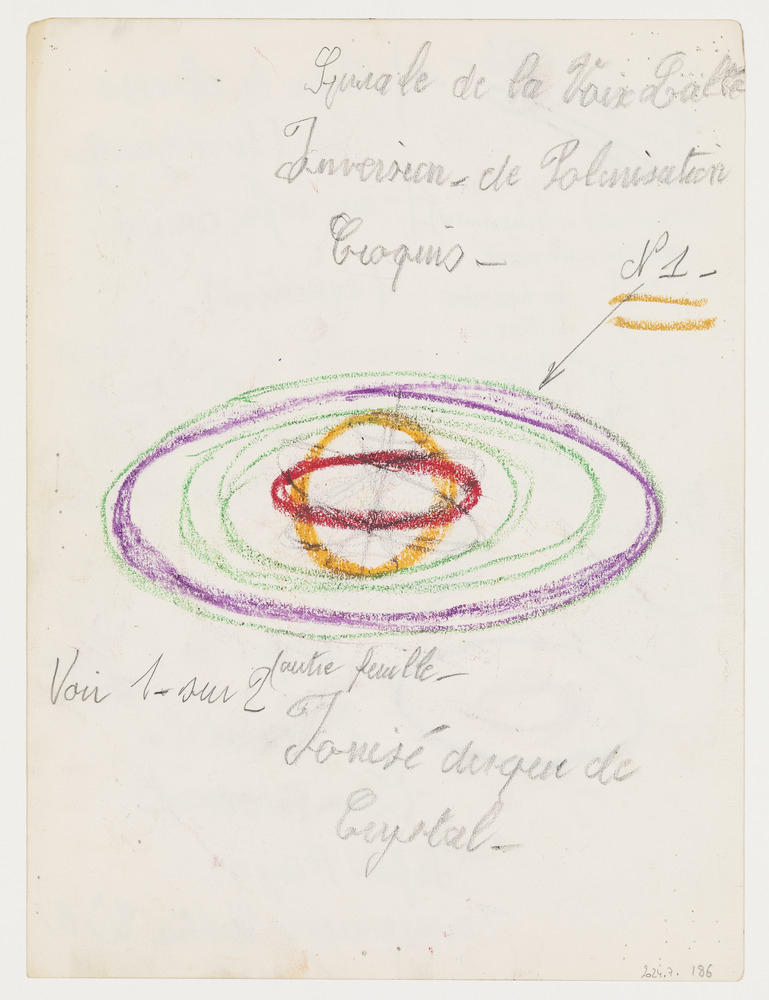 Spirale de la Voix Lactée
Inversion - de Polarisation
Croquis -
N 1 -
Voir 1 - sur 2 (autre feuille -
Ionisé disque de
Crystal -
2024.7. 186